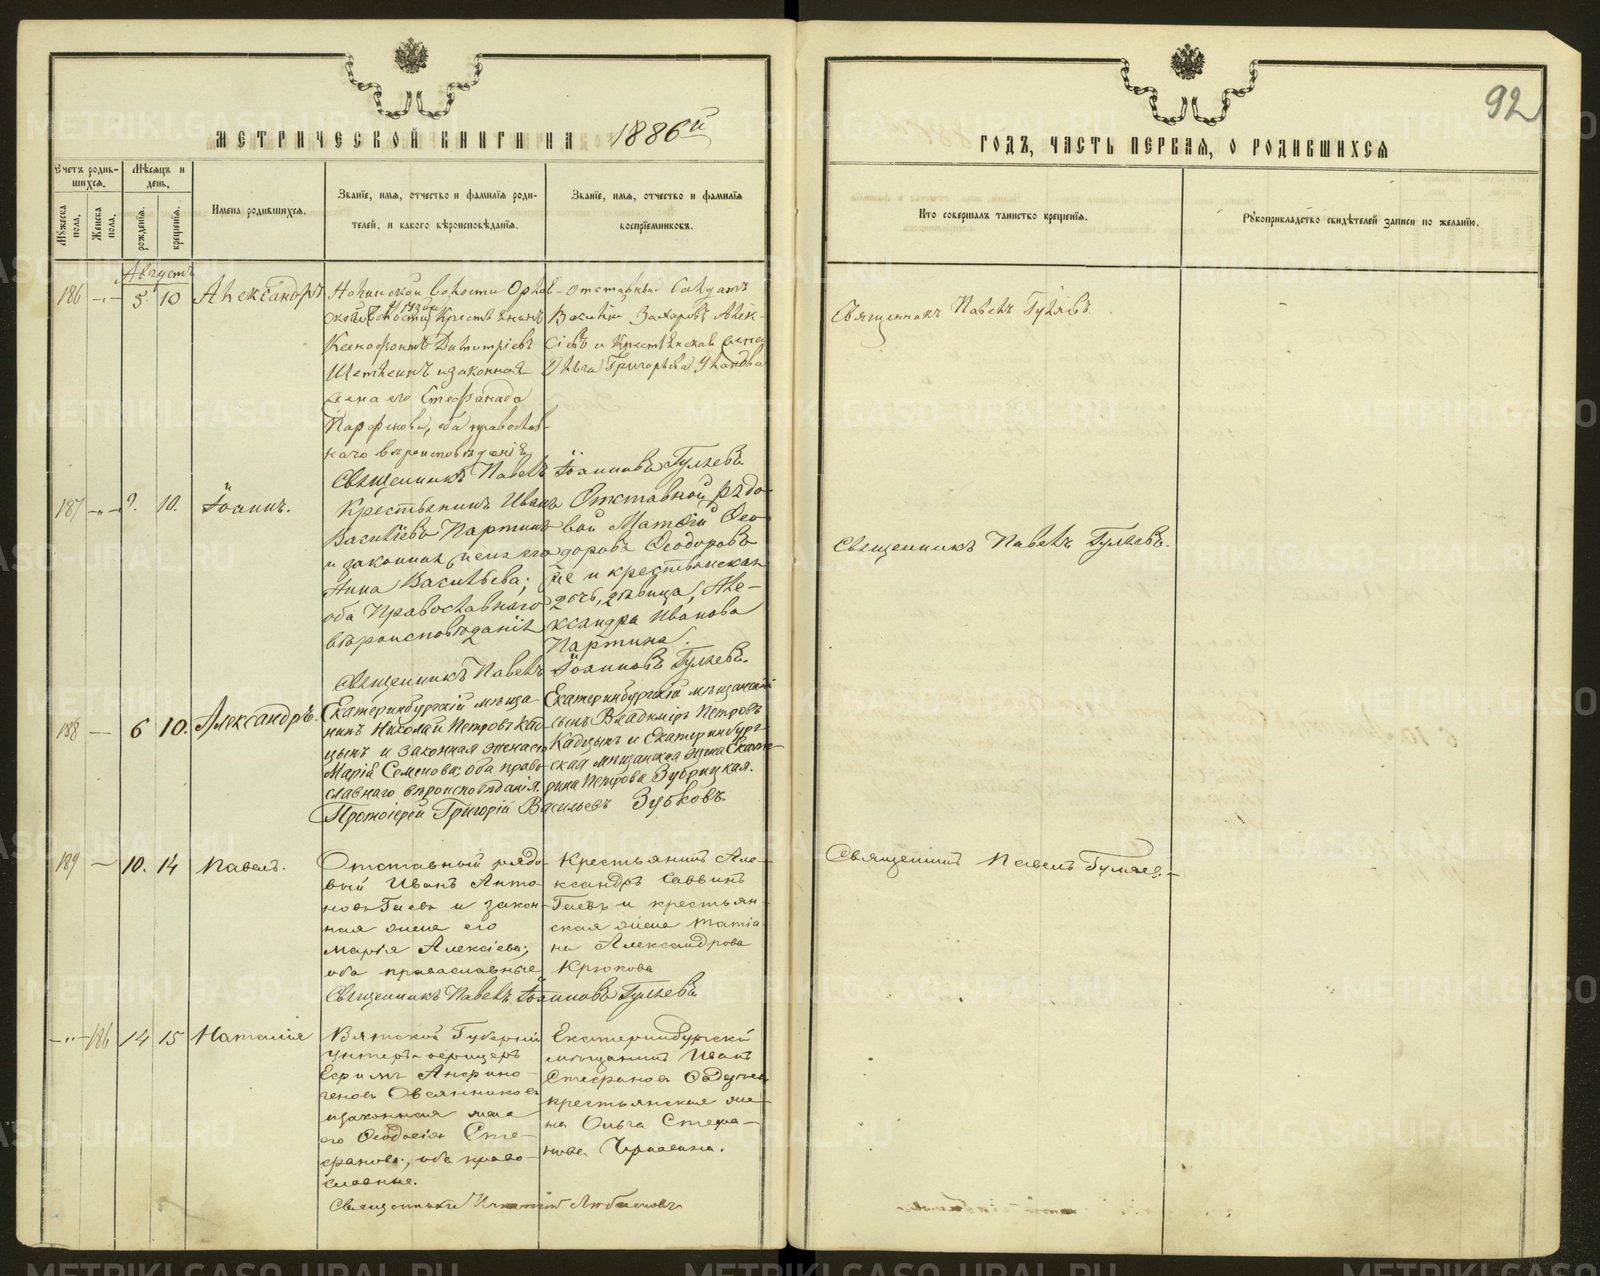 МЕТРИЧЕСКОЙ КНИГИ НА 1886й
ГОДЪ, ЧАСТЬ ПЕРВАЯ, О РОДИВШИХСЯ
92
Счетъ родившихся.
Мѣсяцъ и день.
Мужеска пола.
Женска пола.
рожденія.
крещенія.
Имена родившихся.
Званіе, имя, отчество и фамилія родителей, и какого вѣроисповѣданія.
Званіе, имя, отчество и фамилія воспріемниковъ.
Кто совершалъ таинство крещенія.
Рукоприкладство свидѣтелей записи по желанію.
Августъ
186 5 10 Александръ
волости
крестьянинъ
Ксенофонтъ Димитріевъ
и законная
жена его Стефанида
оба православ-
наго вѣроисповѣданія
отставный солдатъ
Василій Захаровъ Алек-
сіевъ и крестьянская
Ольга Григорьева
Священникъ Павелъ Гуляевъ.
Священникъ Павелъ Іоанновъ Гуляевъ
187 10. Іоаннъ.
Крестьянинъ Иванъ
Василіевъ Партинъ
и законная жена его
Анна Васильева;
оба Православнаго
вѣроисповѣданія
Отставной рядо-
вой Матѳій Ѳео-
доровъ Ѳеодоровъ
и крестьянская
дочь, дѣвица, Але-
ксандра Иванова
Партина.
Священникъ Павелъ Гуляевъ.
Священникъ Павелъ Іоанновъ Гуляевъ.
188 6 10. Александръ.
Екатеринбургскій мѣща-
нинъ Николай Петровъ Кад-
цынъ и законная жена его
Марія Семенова; оба право-
славнаго вѣроисповѣданія.
Екатеринбургскій мѣщанскій
сынъ Владиміръ Петровъ
Кадцынъ и Екатеринбург-
ская мѣщанская жена Екате-
рина Петрова Зубрицкая.
Протоіерей Григорій Васильевъ Зубковъ
189 10. 14 Павелъ.
Отставный рядо-
вый Иванъ Анто-
новъ Гаевъ и закон-
ная жена его
Марія Алексіева;
оба православные
Крестьянинъ Але-
ксандръ Саввинъ
Гаевъ и крестьян-
ская жена Татіа-
на Александрова
Крюкова
Священникъ Павелъ Гуляевъ
Священникъ Павелъ Іоанновъ Гуляевъ
186 14 15 Наталія
Вятской Губерніи
унтеръ-офицеръ
Ефимъ Анфино-
геновъ Овсянниковъ
и законная жена
его Ѳеодосія Сте-
фанова, оба право-
славные.
Екатеринбургскій
мѣщанинъ Иванъ
Стефановъ
крестьянская же-
на Ольга Стефа-
нова
Священникъ
METRIKI.GASO-URAL.RU